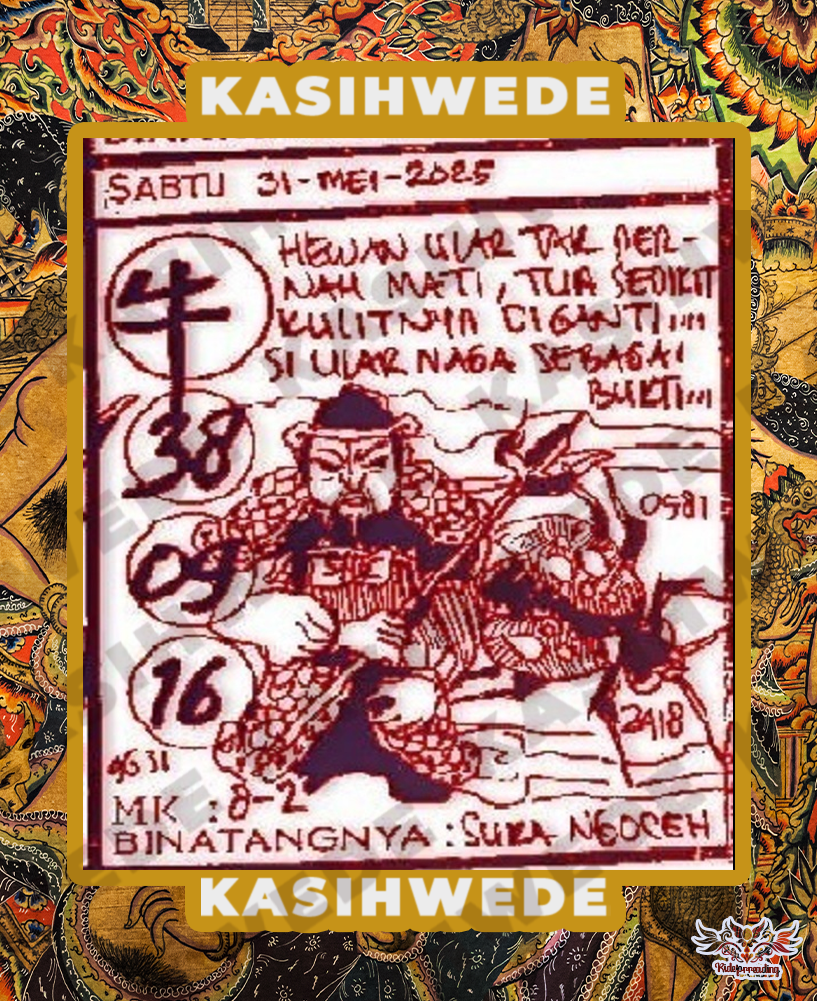 KASIHWEDE
SABTU 31-MEI-2025
牛
HEWAN ULAR TAK PER-
NAH MATI, TUA SEDIKIT
KULITNYA DIGANTI,,,,
SI ULAR NAGA SEBAGAI
BUKTI,,,
38
09
16
0581
2418
9631
MK : 8-2
BINATANGNYA : SUKA NGOCEH
KASIHWEDE